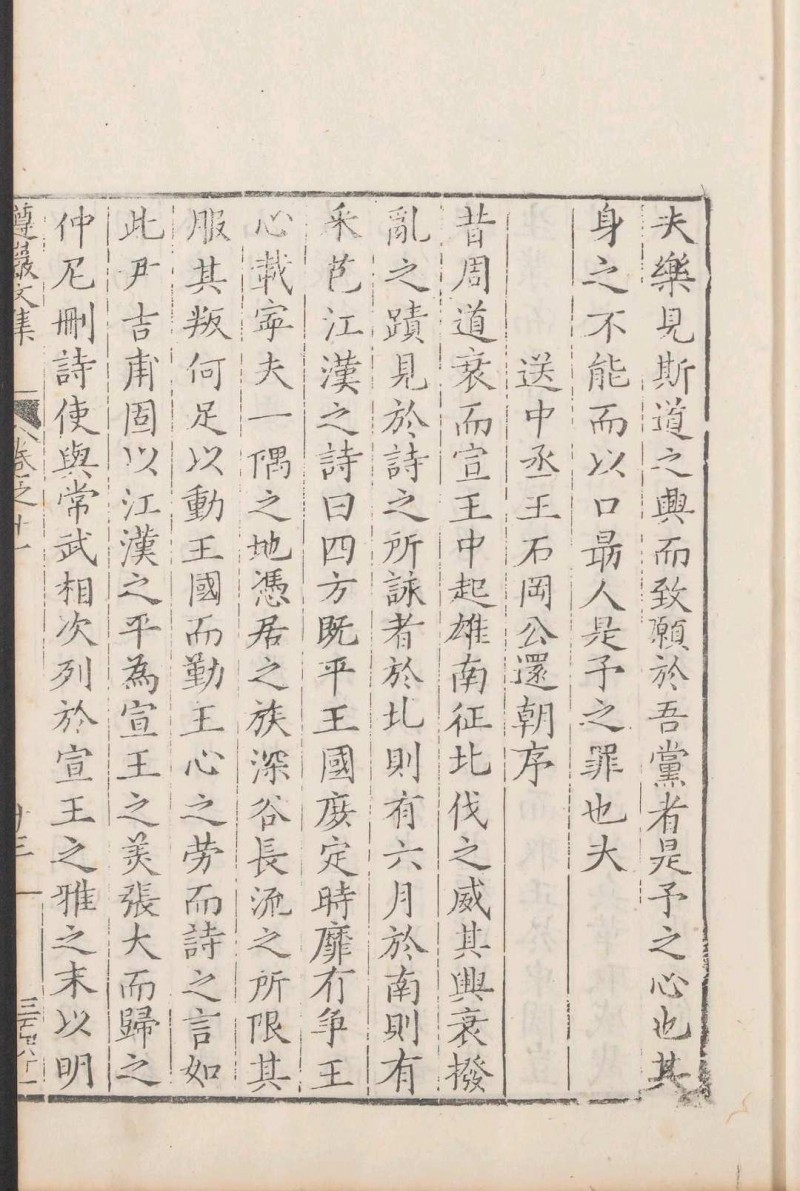 夫樂見斯道之興而致願於吾黨者是予之心也其
身之不能而以口勗人是予之罪也夫
送中丞王石岡公還朝序
昔周道衰而宣王中起雄南征北伐之威其興衰撥
亂之蹟見於詩之所詠者於北則有六月於南則有
采芑江漢之詩曰四方既平王國庶定時靡有争王
心載寧夫一偶之地憑居之族深谷長流之所限其
服其叛何足以動王國而勤王心之劳而詩之言如
此尹吉甫固以江漢之平為宣王之美張大而歸之
仲尼刪詩使與常武相次列於宣王之雅之末以明
遵巖文集
卷之十一
廿三